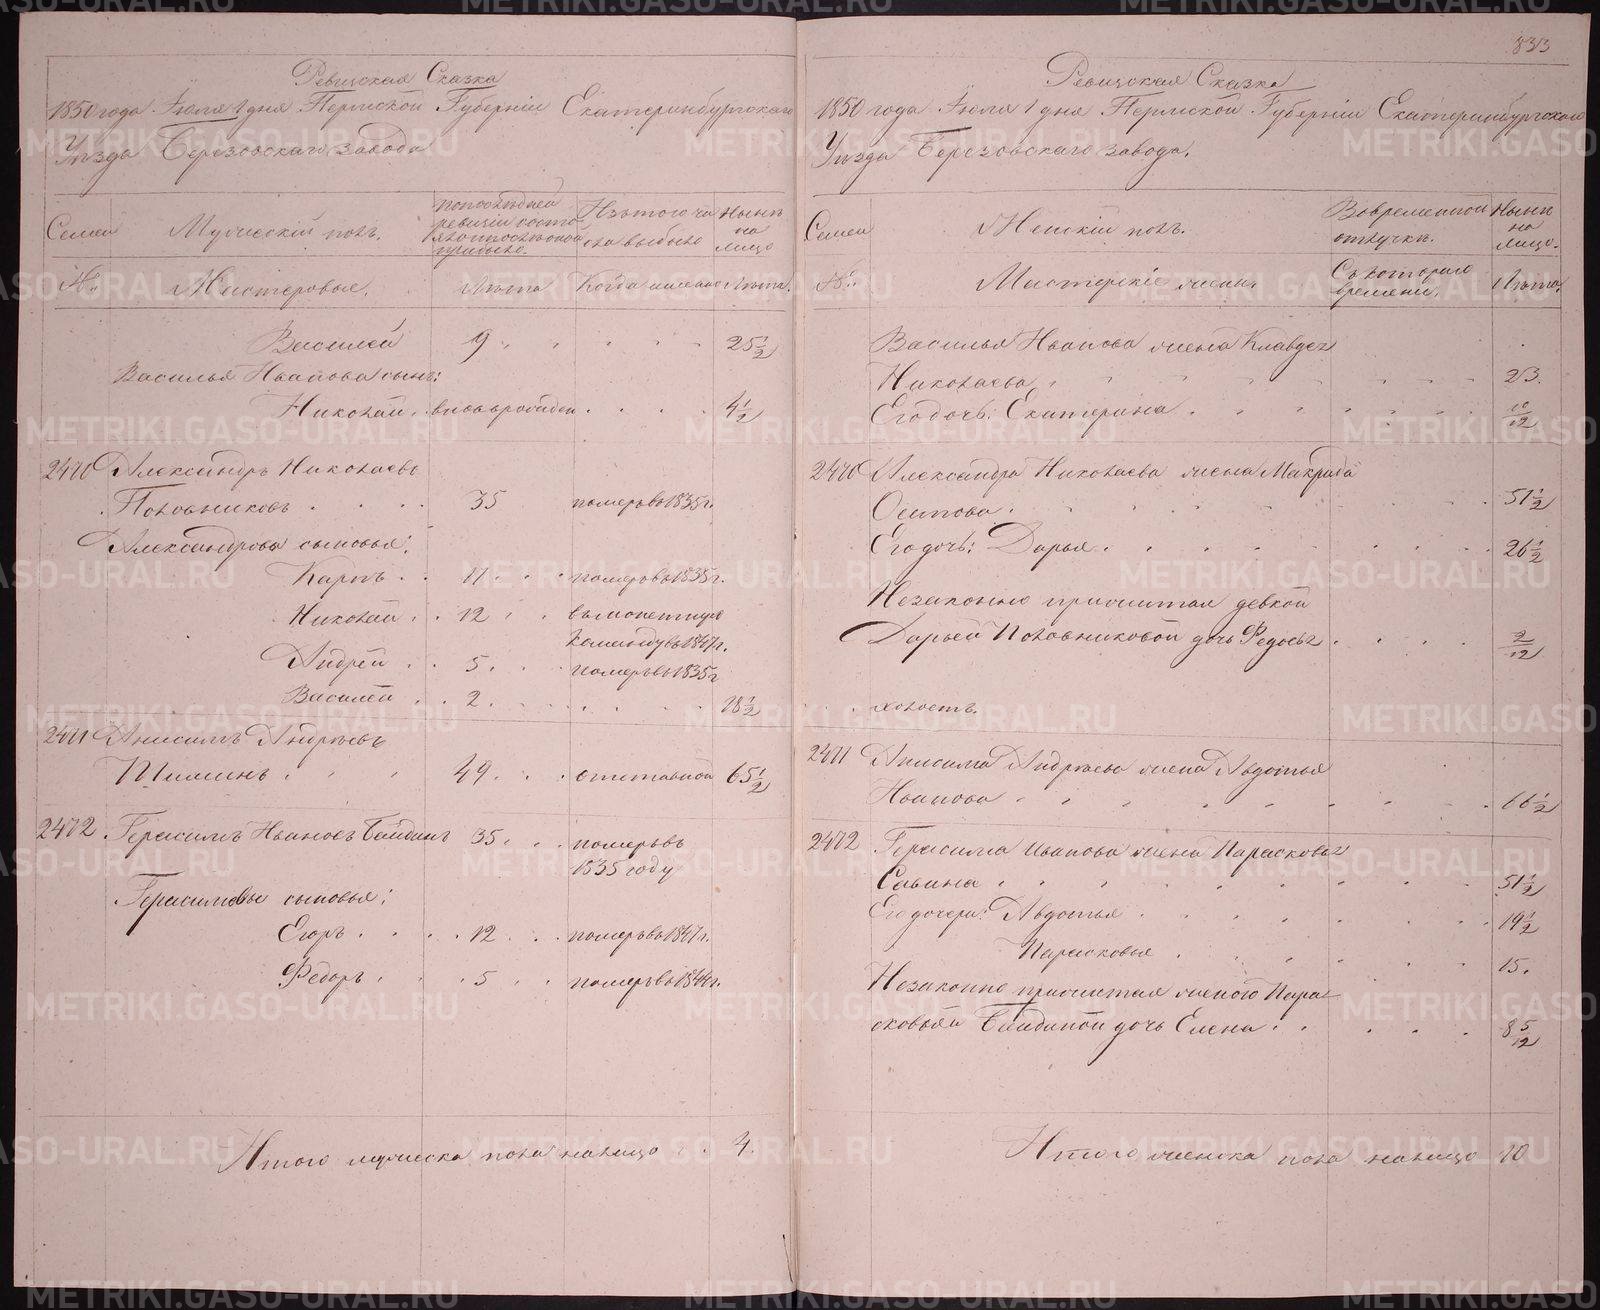 Ревижская Сказка
1850 года Июля 1 дня Пермской Губернии Екатеринбургскаго
Уезда Березовскаго завода
Семеи
Мужескій полъ.
По последней ревизіи состояло и после оной прибыло.
Изъ того числа выбыло
Ныне на лицо
№.
Мастеровые.
Лета
Когда именно
Лета.
Василей 9 25 1/2
Василья Иванова сынъ:
Николай вновь рожден 4 1/2
2470 Александръ Николаевъ
Половниковъ 35 померъ въ 1835 г.
Александровы сыновья:
Карпъ 17 померъ въ 1835 г.
Николай 12 въ монетную
команду въ 1847 г.
Андрей 5 померъ въ 1835 г
Василей 2 18 1/2
2471 Анисимъ Андреевъ
Шишинъ 49 отставной 65 1/2
2472 Герасимъ Ивановъ Байдинъ 35 померъ въ
1835 году
Герасимовы сыновья:
Егоръ 12 померъ въ 1847 г.
Федоръ 5 померъ въ 1844 г.
Итого мужеска пола на лицо 4.
833
Ревижская Сказка
1850 года Июля 1 дня Пермской Губернии Екатеринбургскаго
Уезда Березовскаго завода.
Семеи
Женскій полъ.
Во временной отлучке.
Ныне на лицо.
№.
Мастерскіе жены.
Съ котораго времени.
Лета.
Василья Иванова жена Клавдея
Николаева 23.
Его дочь: Екатерина 10/12
2470 Александра Николаева жена Макрида
Осипова 51 1/2
Его дочь: Дарья 26 1/2
Незаконно прижитая девкой
Дарьей Половниковой дочь Федосья 2/12
холостъ.
2471 Анисима Андреева жена Авдотья
Иванова 66 1/2
2472 Герасима Иванова жена Парасковья
Савина 51 1/2
Его дочери: Авдотья 19 1/2
Парасковья 15.
Незаконно прижитая женою Пара
сковьей Байдиной дочь Елена 8 5/12
Итого женска пола на лицо 10
METRIKI.GASO-URAL.RU